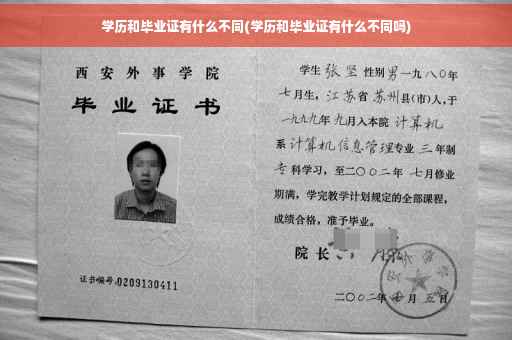 学历和毕业证有什么不同(学历和毕业证有什么不同吗)
西安外事学院
毕业证书
证书编号:0209130411
学生张坚性别男一九八〇年
七月生,江苏省苏州县(市)人,于
一九九九年九月入本院计算机
系计算机信息管理专业三年制
专科学习,至二〇〇二年七月修业
期满,学完教学计划规定的全部课程,
成绩合格,准予毕业。
院长
二〇〇二年 月五日